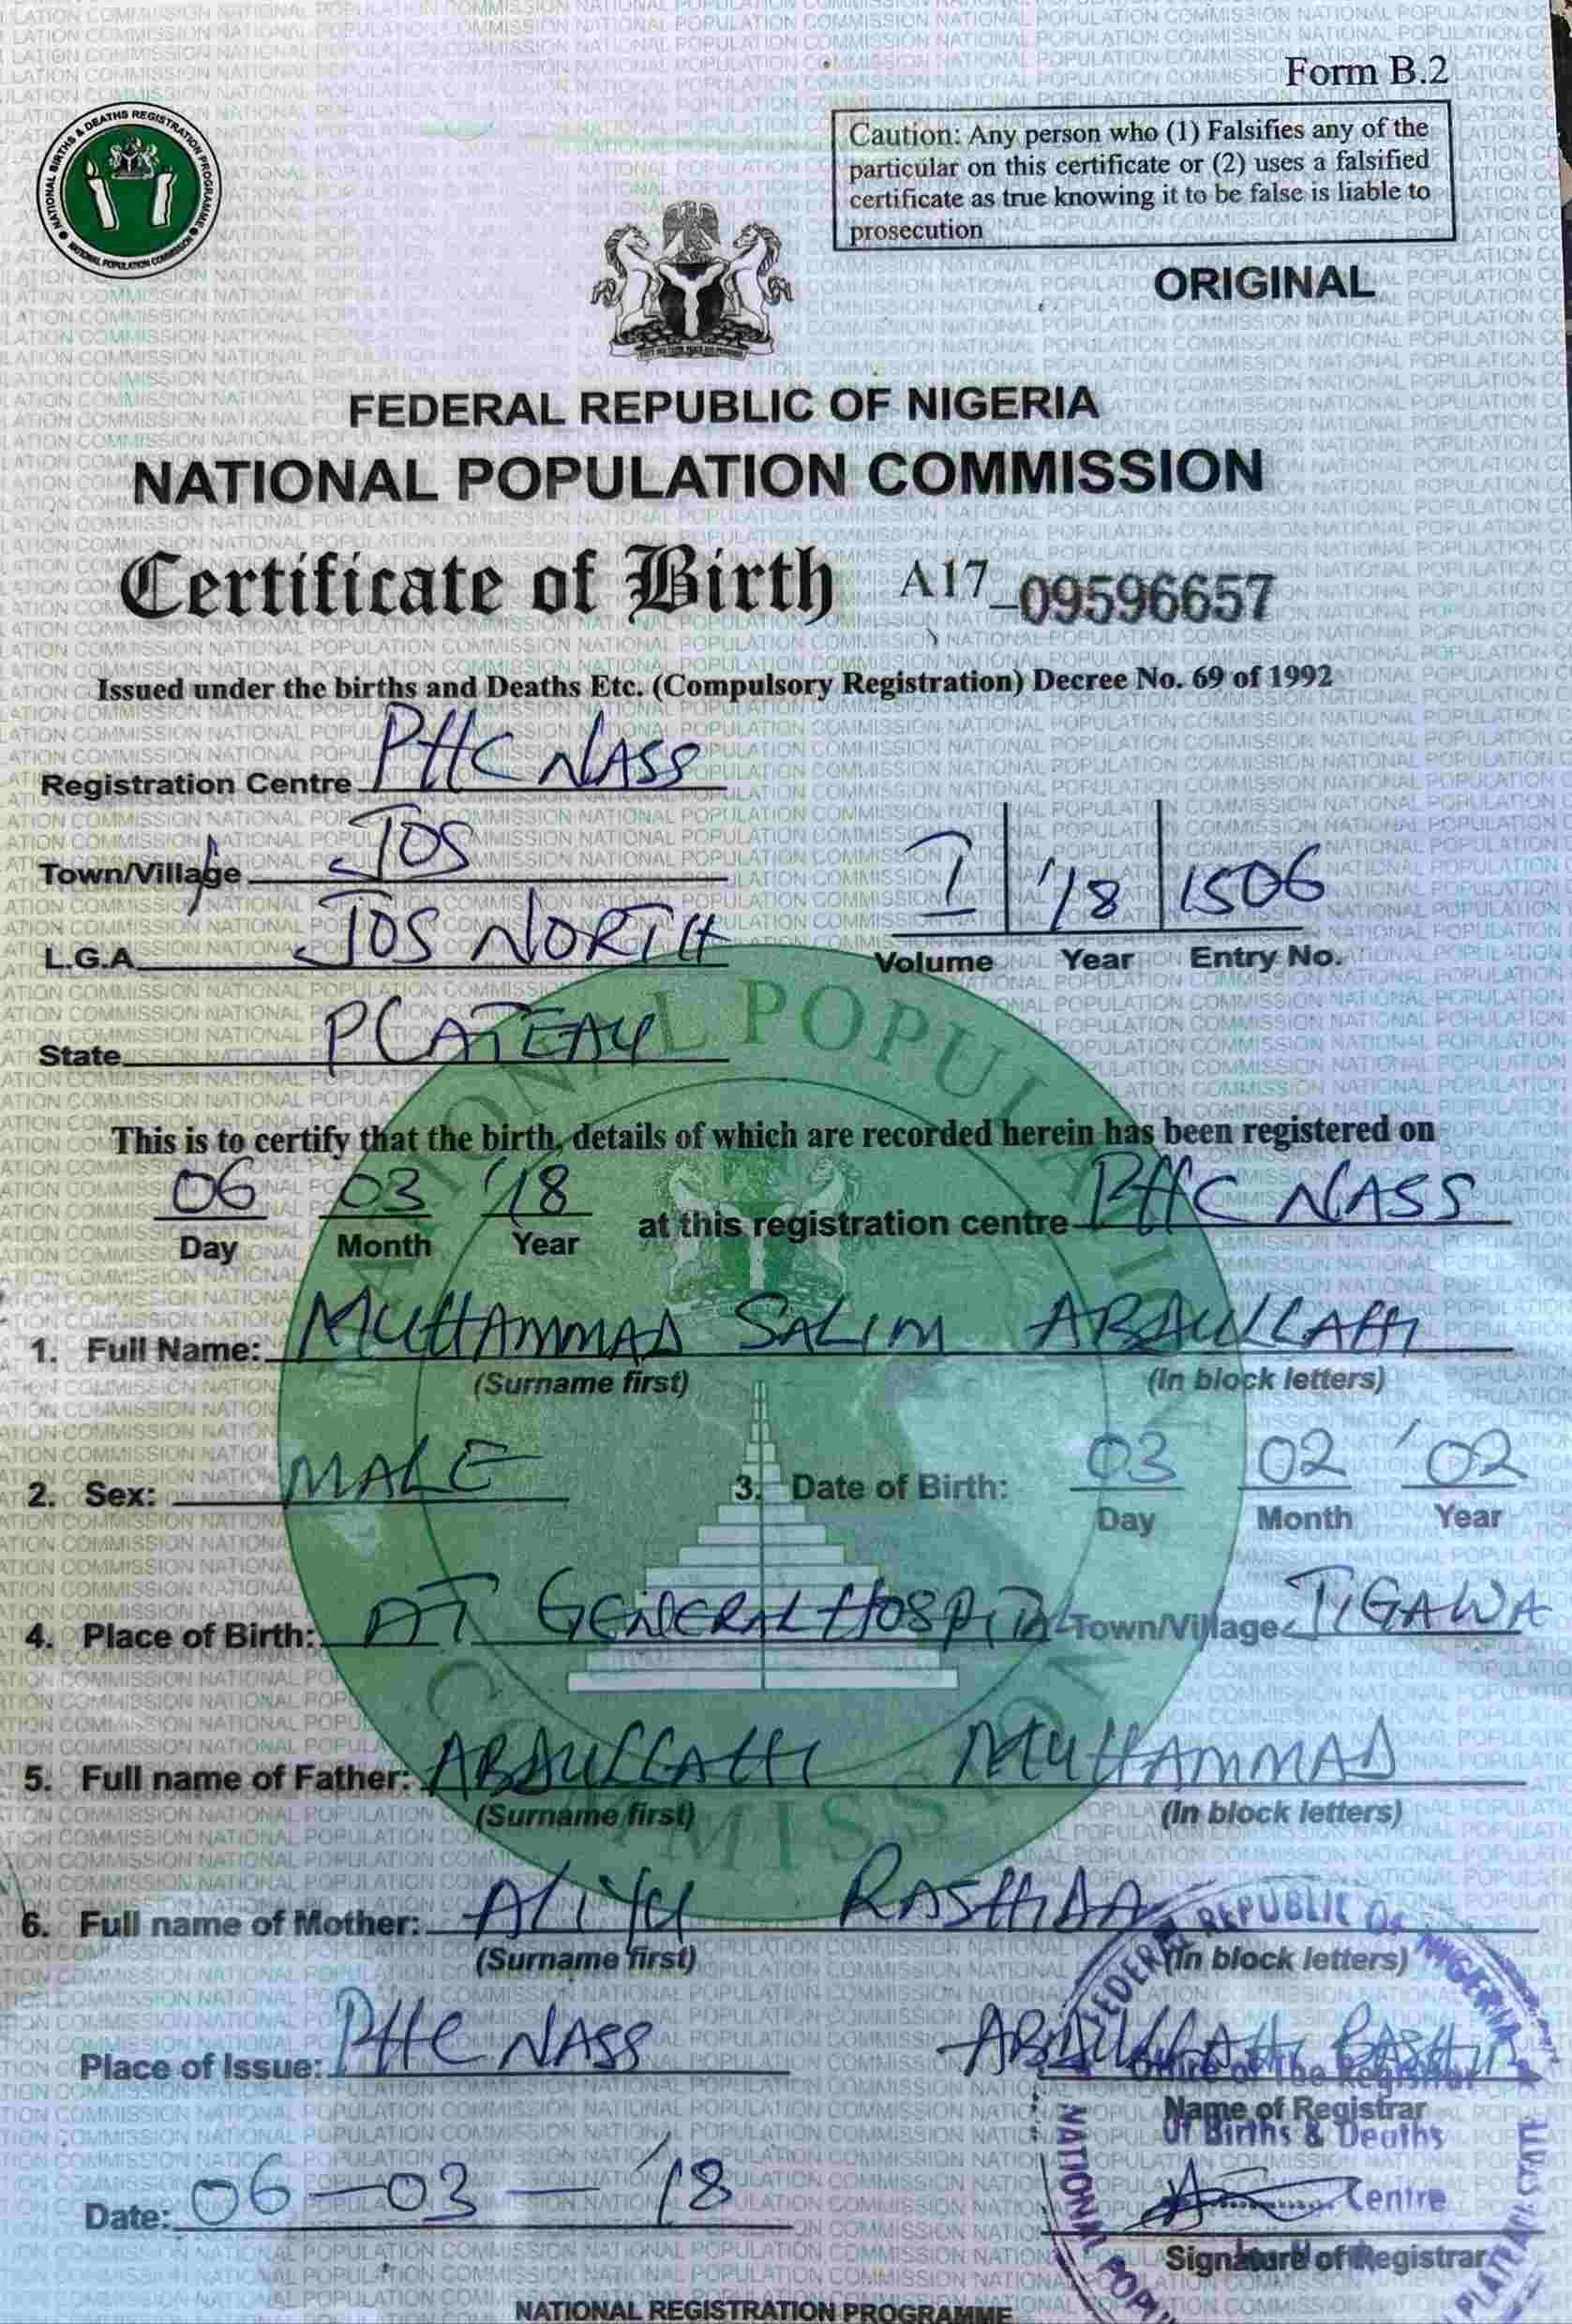 Form B.2
NATIONAL BIRTHS & DEATHS REGISTRATION PROGRAMME
NATIONAL POPULATION COMMISSION
Caution: Any person who (1) Falsifies any of the
particular on this certificate or (2) uses a falsified
certificate as true knowing it to be false is liable to
prosecution
ORIGINAL
FEDERAL REPUBLIC OF NIGERIA
NATIONAL POPULATION COMMISSION
Certificate of Birth A17_09596657
Issued under the births and Deaths Etc. (Compulsory Registration) Decree No. 69 of 1992
Registration Centre PHC NASS
Town/Village JOS
I '18 1506
L.G.A JOS NORTH
Volume Year Entry No.
State PLATEAU
This is to certify that the birth, details of which are recorded herein has been registered on
06 03 '18 at this registration centre PHC NASS
Day Month Year
1. Full Name: MUHAMMAD SALIM ABDULLAHI
(Surname first) (In block letters)
2. Sex: MALE 3. Date of Birth: 03 02 '02
Day Month Year
4. Place of Birth: AT GENERAL HOSPITAL Town/Village JIGAWA
5. Full name of Father: ABDULLAHI MUHAMMAD
(Surname first) (In block letters)
6. Full name of Mother: ALIYU RASHIDA
(Surname first) (In block letters)
Place of Issue: PHC NASS ABDULLAHI BASHIR
Name of Registrar
Date: 06-03-'18
Signature of Registrar
FEDERAL REPUBLIC OF NIGERIA
Office of The Registrar
Of Births & Deaths
Centre
NATIONAL REGISTRATION PROGRAMME